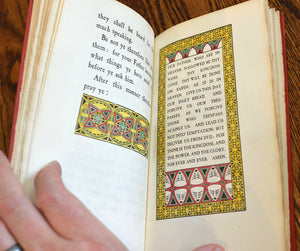 they shall be heard for
much speaking.
Be not ye therefore
them: for your Father
what things ye have need
before ye ask him.
After this manner therefore
pray ye:
OUR FATHER, WHO ART IN
HEAVEN, HALLOWED BE THY
NAME. THY KINGDOM
COME. THY WILL BE DONE
ON EARTH, AS IT IS IN
HEAVEN. GIVE US THIS DAY
OUR DAILY BREAD. AND
FORGIVE US OUR TRES-
PASSES, AS WE FORGIVE
THOSE WHO TRESPASS
AGAINST US. AND LEAD US
NOT INTO TEMPTATION; BUT
DELIVER US FROM EVIL: FOR
THINE IS THE KINGDOM, AND
THE POWER, AND THE GLORY,
FOR EVER AND EVER. AMEN.